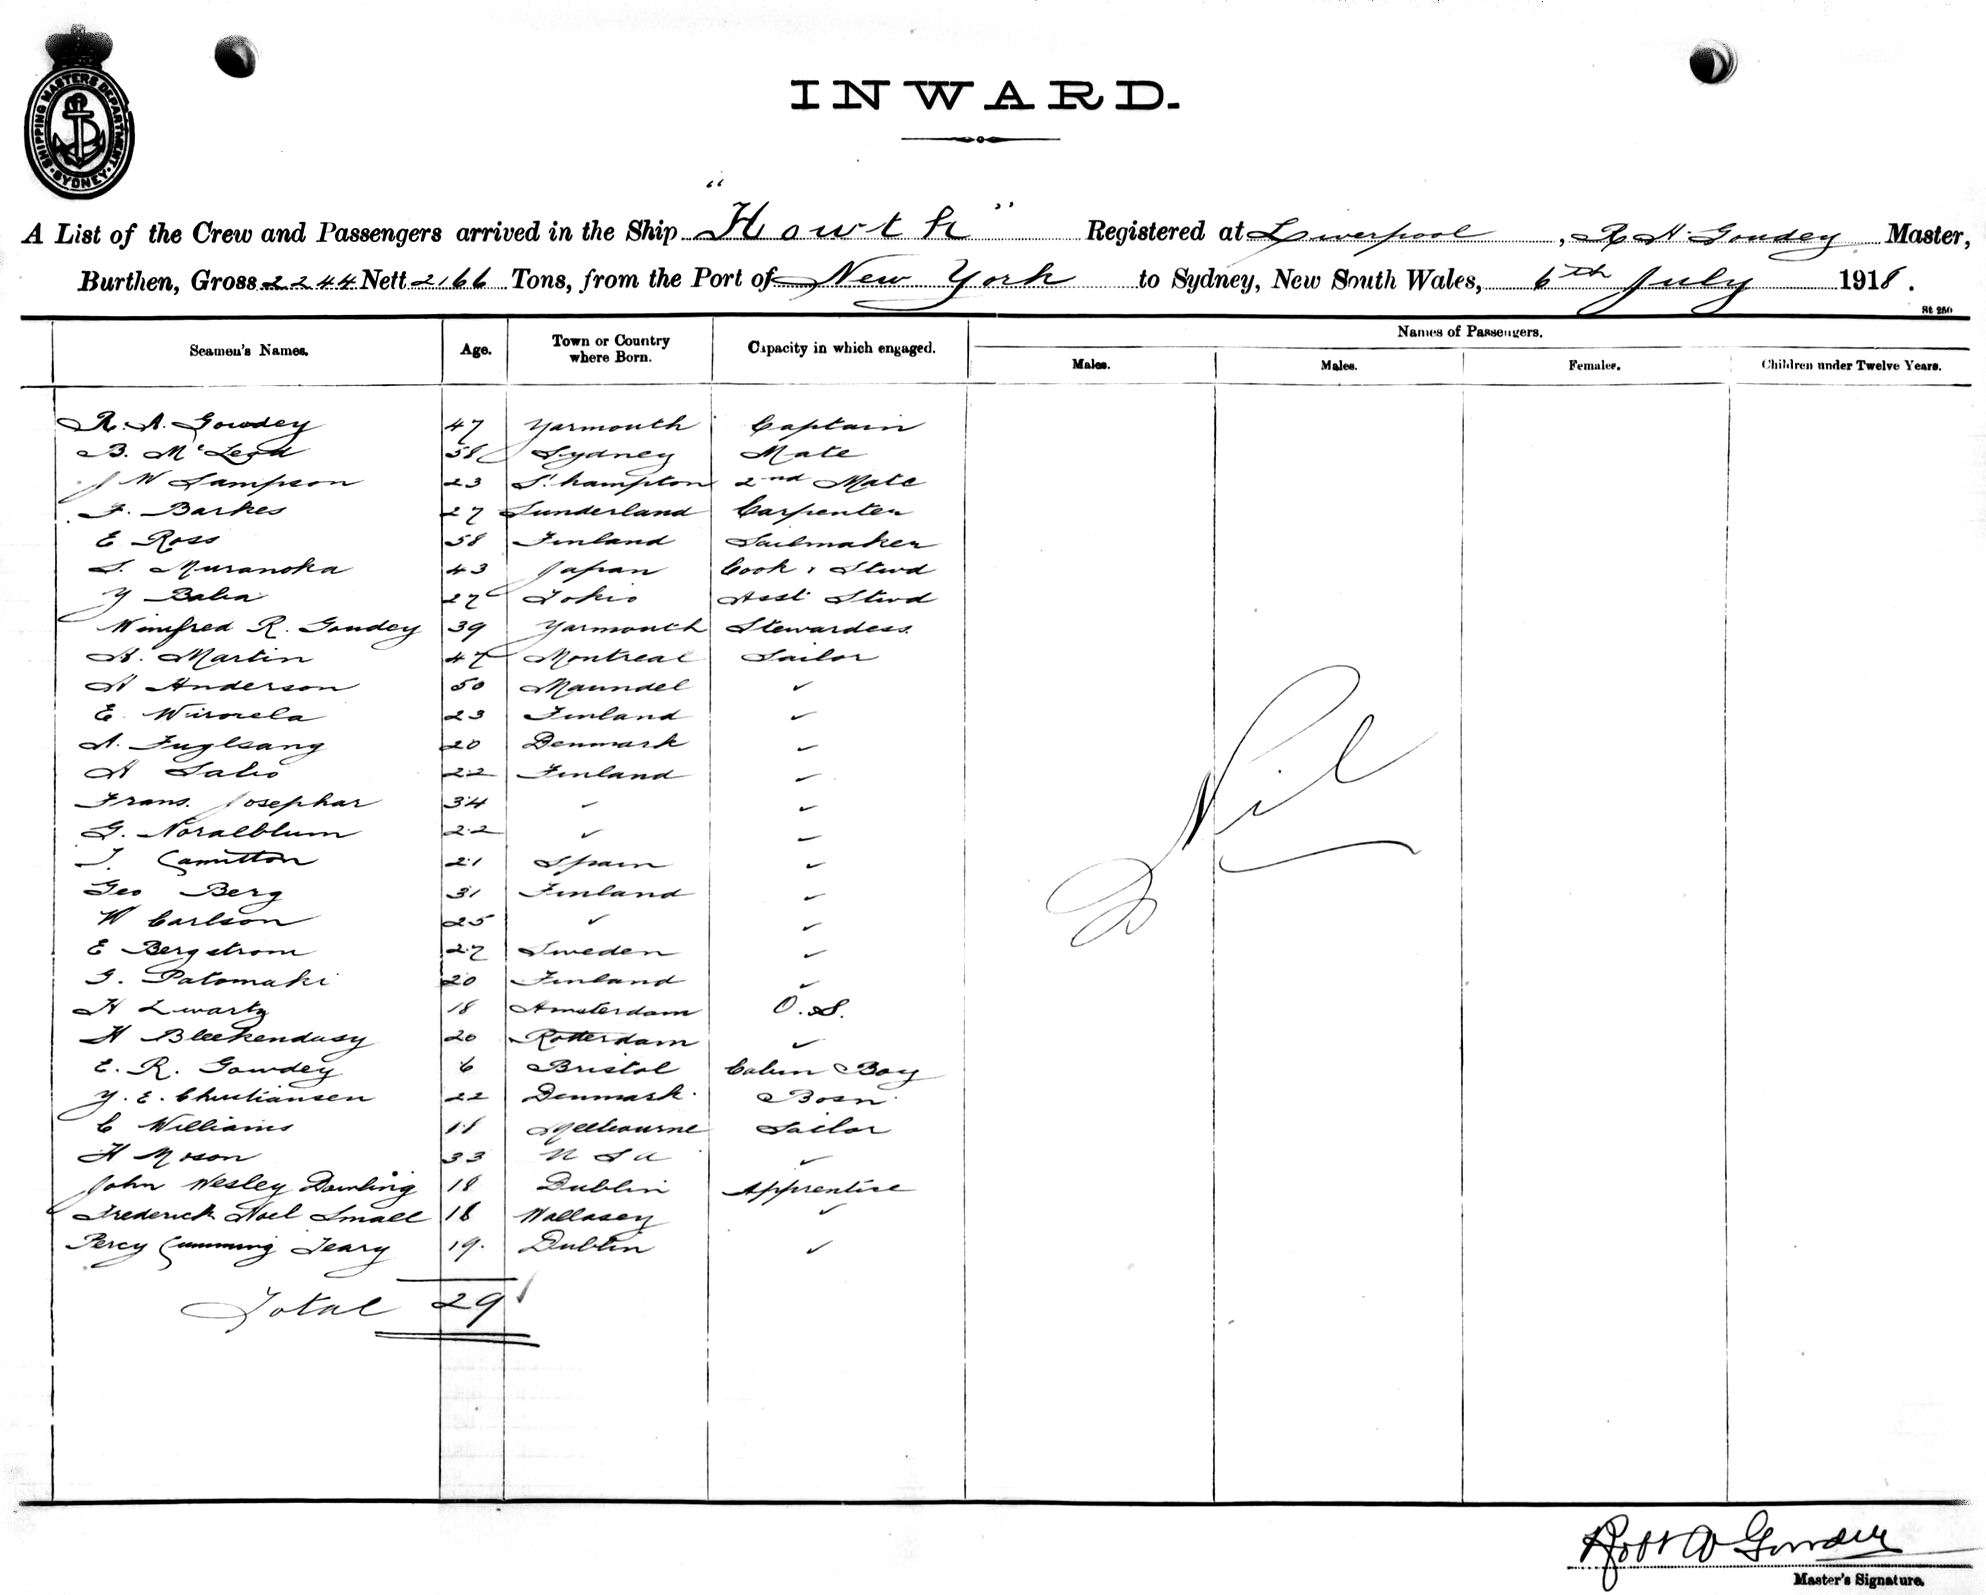 SHIPPING MASTERS DEPARTMENT
SYDNEY
INWARD.
A List of the Crew and Passengers arrived in the Ship "Howth" Registered at Liverpool, R A Goudey Master,
Burthen, Gross 2244 Nett 2166 Tons, from the Port of New York to Sydney, New South Wales, 6th July 1918.
St 250
Seamen's Names. Age. Town or Country where Born. Capacity in which engaged. Names of Passengers.
Males. Males. Females. Children under Twelve Years.
R. A. Gowdey 47 Yarmouth Captain
B. McLeod 58 Sydney Mate
J W Sampson 23 S'hampton 2nd Mate
F. Barkes 27 Sunderland Carpenter
E Ross 58 Finland Sailmaker
S. Muranoka 43 Japan Cook & Stwd
Y Baba 27 Tokio Asst Stwd
Winifred R. Goudey 39 Yarmouth Stewardess
A. Martin 47 Montreal Sailor
A Anderson 50 ✓
E. 23 Finland ✓
A. Fuglsang 20 Denmark ✓
A Salio 22 Finland ✓
Frans. Josephar 34 ✓ ✓
G. 22 ✓ ✓
21 Spain ✓
Geo Berg 31 Finland ✓
W Carlson 25 ✓ ✓
E Bergstrom 27 Sweden ✓
Patomaki 20 Finland ✓
H Zwartz 18 Amsterdam O.S.
H 20 Rotterdam ✓
E. R. Gowdey 6 Bristol Cabin Boy
Y. E. Christiansen 22 Denmark Bosn
C Williams Melbourne Sailor
H Moson 33 U S A ✓
John Wesley Dowling 18 Dublin Apprentice
Frederick Noel Small 18 Wallasey ✓
Percy Cumming Teary 19. Dublin ✓
Total 29 ✓
Nil
Robt A Gowdey
Master's Signature.